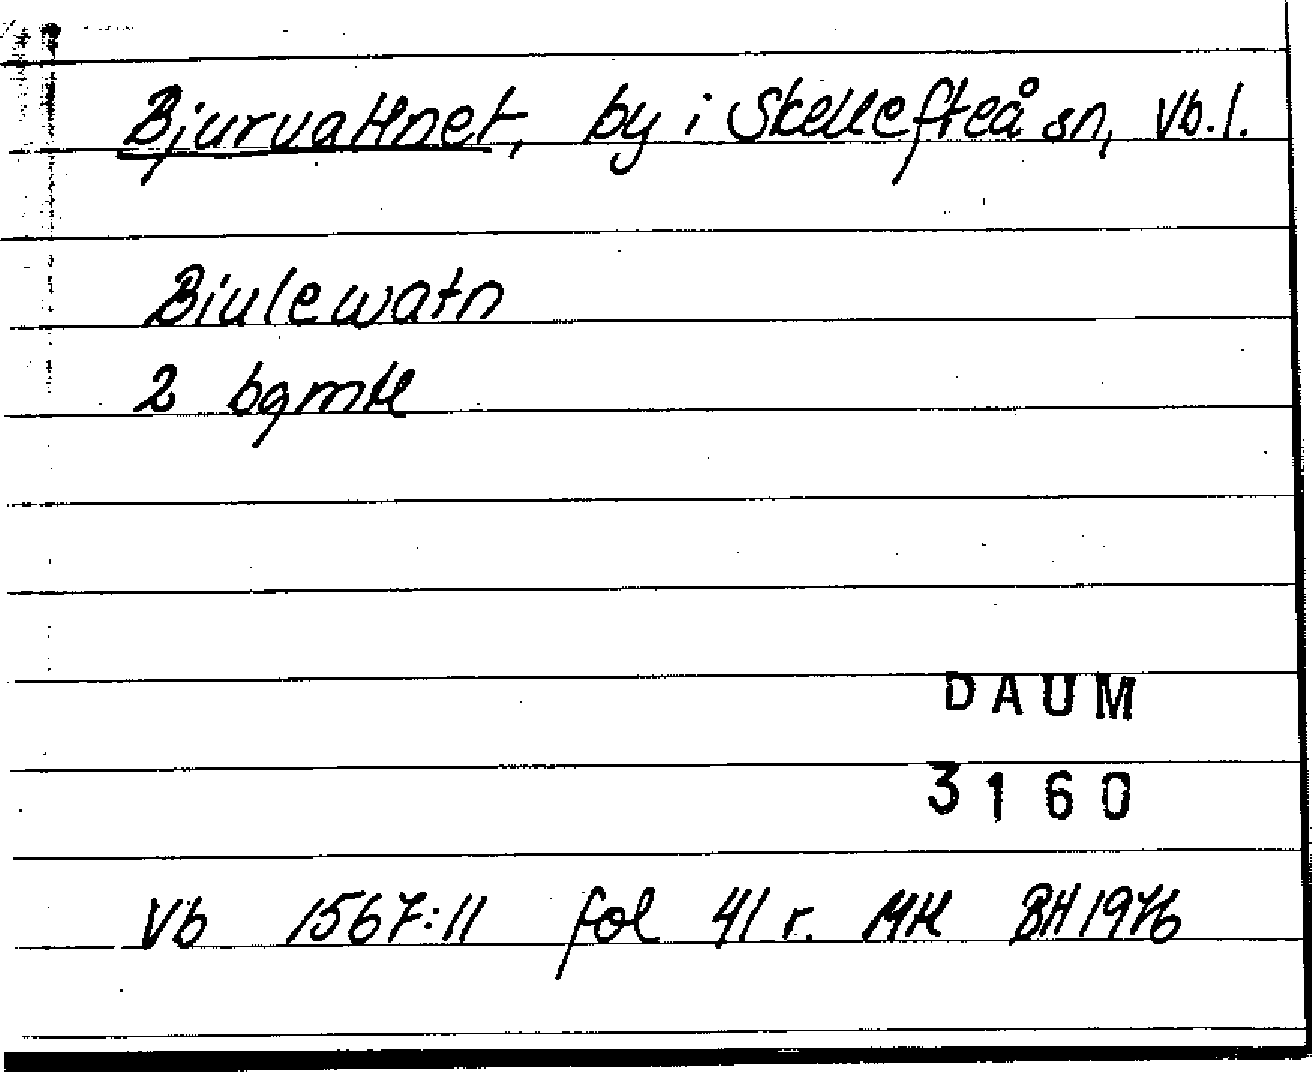 Bjurvattnet, by i Skellefteå sn, Vb. l.
Biulewatn
2 bgmkl
DAUM
3160
Vb 1567:11 fol 41 r. MH BH 1976